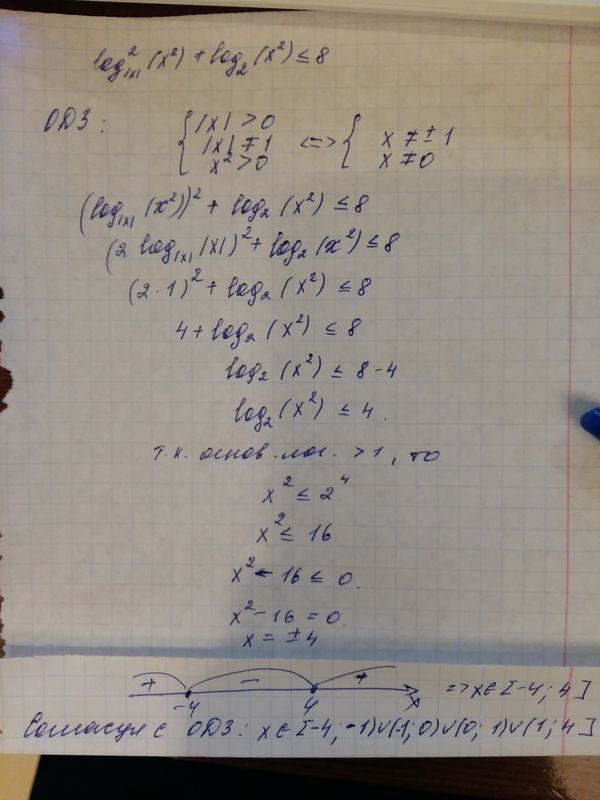 log²_|x| (x²) + log₂ (x²) ≤ 8
ОДЗ: { |x| > 0 |x| ≠ 1 x² > 0 <=> { x ≠ ± 1 x ≠ 0
(log_|x| (x²))² + log₂ (x²) ≤ 8
(2 log_|x| |x|)² + log₂ (x²) ≤ 8
(2 · 1)² + log₂ (x²) ≤ 8
4 + log₂ (x²) ≤ 8
log₂ (x²) ≤ 8 - 4
log₂ (x²) ≤ 4.
т.к. основ. лог. > 1, то
x² ≤ 2⁴
x² ≤ 16
x² - 16 ≤ 0.
x² - 16 = 0.
x = ± 4
+ - + => x ∈ [-4; 4]
-4 4 x
Согласуя с ОДЗ: x ∈ [-4; -1) ∪ (-1; 0) ∪ (0; 1) ∪ (1; 4]